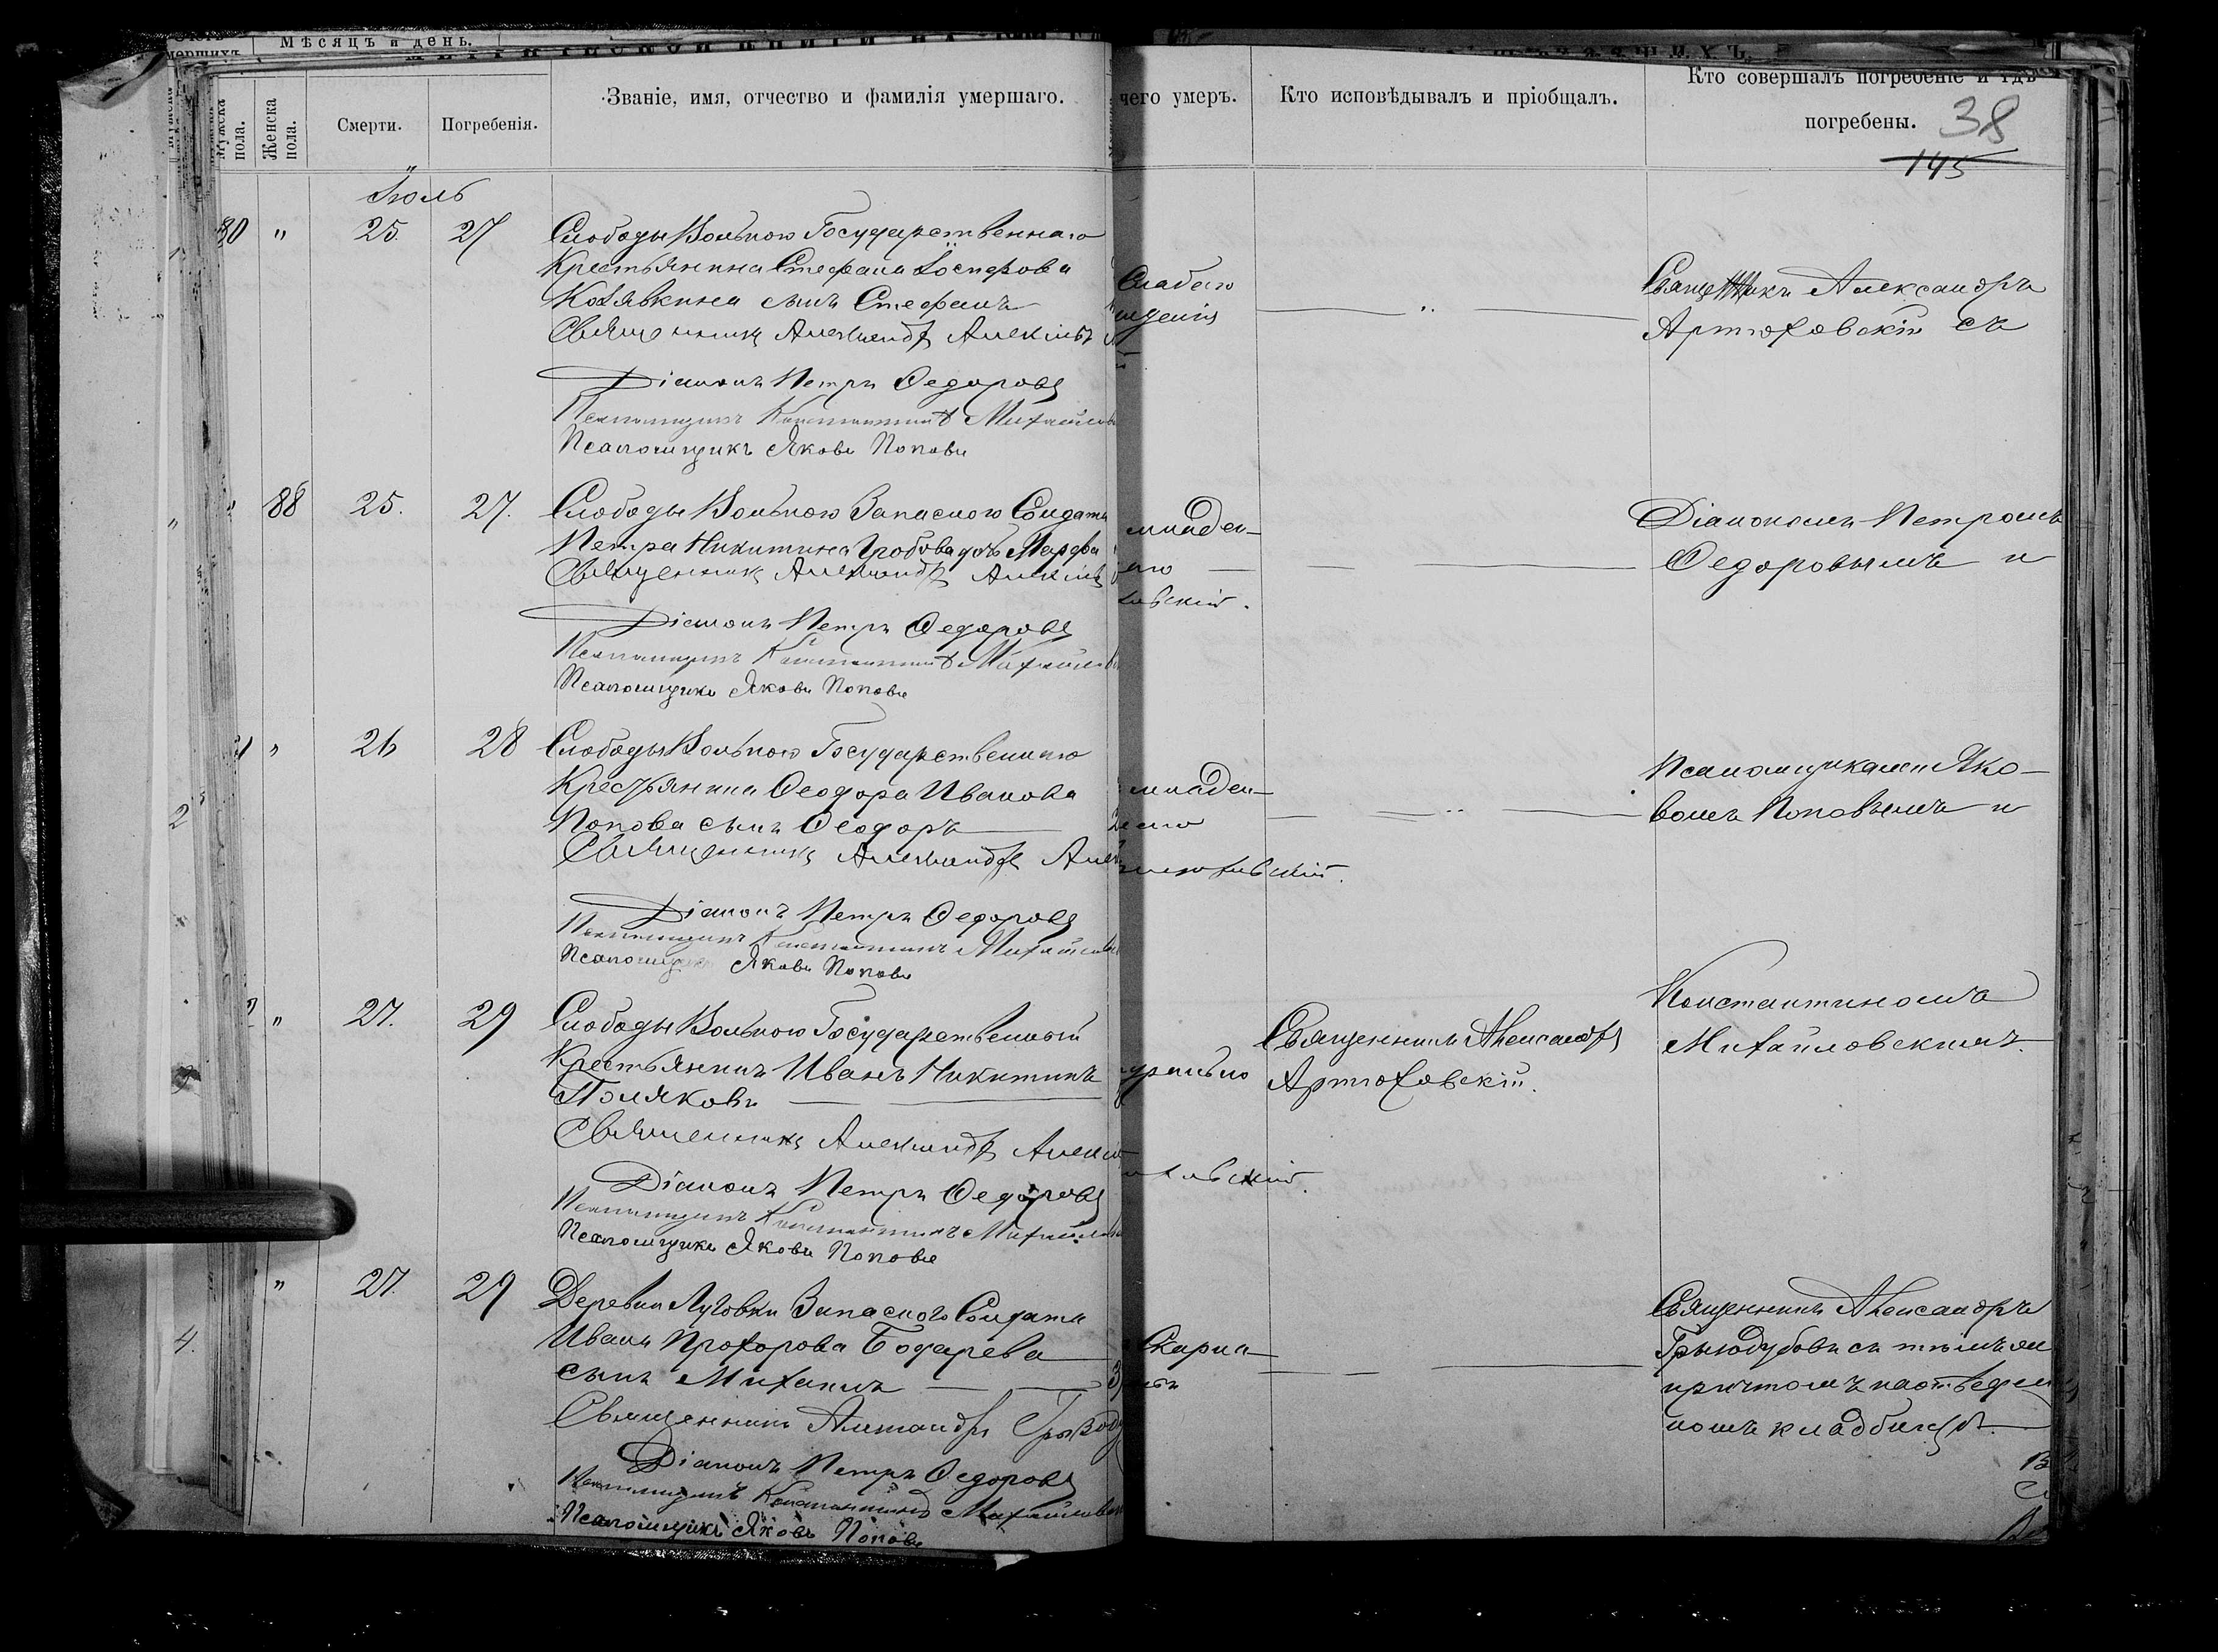 Мѣсяцъ и день.
Мужска пола.
Женска пола.
Смерти.
Погребенія.
Званіе, имя, отчество и фамилія умершаго.
чего умеръ.
Кто исповѣдывалъ и пріобщалъ.
Кто совершалъ погребеніе и гдѣ
погребены.
38
145
Іюль
80 " 25. 27 Слободы Вольного Государственнаго
Крестьянина Стефана Іосифова
Котявкина сынъ Стефанъ
Священникъ Александръ
Діаконъ Петръ Ѳедоровъ
Псаломщикъ Константинъ
Псаломщикъ Яковъ Поповъ
Слабаго
Священникъ Александръ
Артюховскій съ
" 88 25. 27. Слободы Вольного Запасного Солдата
Петра Никитина дочь Марфа
Священникъ Александръ
Діаконъ Петръ Ѳедоровъ
Псаломщикъ Константинъ
Псаломщикъ Яковъ Поповъ
младен-
Діакономъ Петромъ
Ѳедоровымъ и
" 26 28 Слободы Вольного Государственнаго
Крестьянина Ѳеодора Иванова
Попова сынъ Ѳеодоръ
Священникъ Александръ
Діаконъ Петръ Ѳедоровъ
Псаломщикъ Константинъ
Яковъ Поповъ
младен-
Псаломщиками Яко-
вомъ Поповымъ и
" 27. 29 Слободы Вольного Государственный
Крестьянинъ Иванъ Никитинъ
Поляковъ
Священникъ Александръ
Діаконъ Петръ Ѳедоровъ
Псаломщикъ Константинъ
Псаломщикъ Яковъ Поповъ
Священникъ Александръ
Артюховскій.
Константиномъ
Михайловскимъ.
" 27. 29 Деревни Луговки Запасного Солдата
Ивана Прохорова Бодарева
сынъ Михаилъ
Священникъ Александръ
Діаконъ Петръ Ѳедоровъ
Псаломщикъ Константинъ
Псаломщикъ Яковъ Поповъ
Скарла-
Священникъ Александръ
съ тѣмъ же
причтомъ на отведен
номъ кладбищѣ.
2
4.